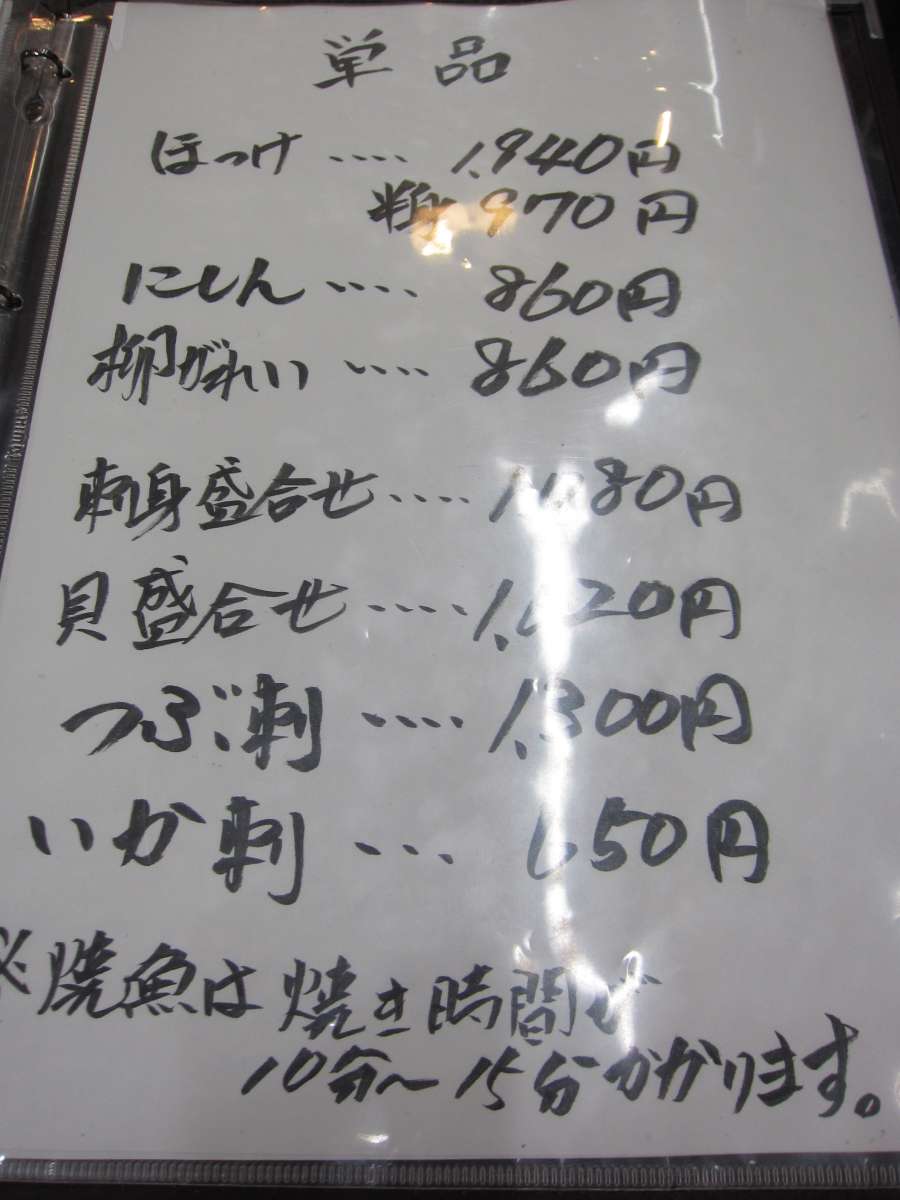 単品
ほっけ ‥‥ 1,940円
970円
にしん ‥‥ 860円
柳がれい ‥‥ 860円
刺身盛合せ ‥‥
貝盛合せ ‥‥
つぶ刺 ‥‥ 1,300円
いか刺 ‥・ 650円
※焼魚は焼き時間が
10分〜15分かかります。